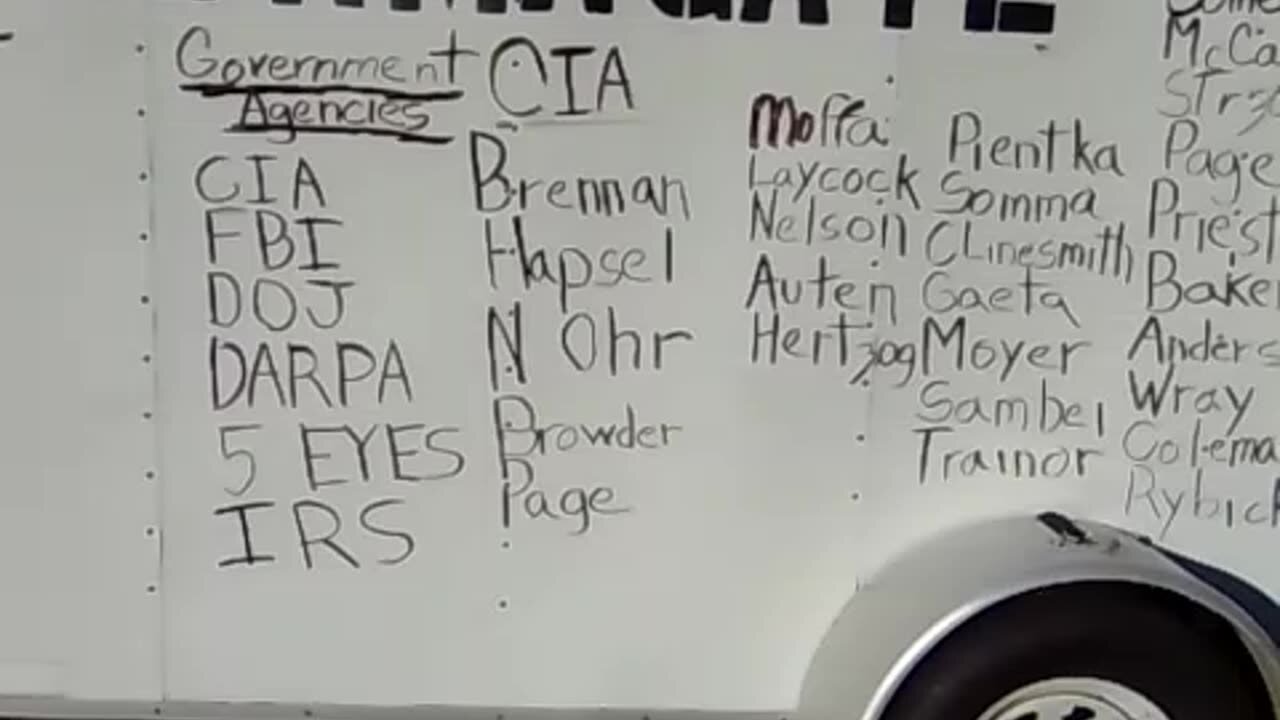 Government
Agencies
CIA
FBI
DOJ
DARPA
5 EYES
IRS
CIA
Brennan
Hapsel
N Ohr
Browder
Page
Moffa
Laycock
Nelson
Auten
Hertzog
Pientka
Somma
CLinesmith
Gaeta
Moyer
Sambel
Trainor
McCa
Strzo
Page
Priest
Baker
Anders
Wray
Colema
Rybick